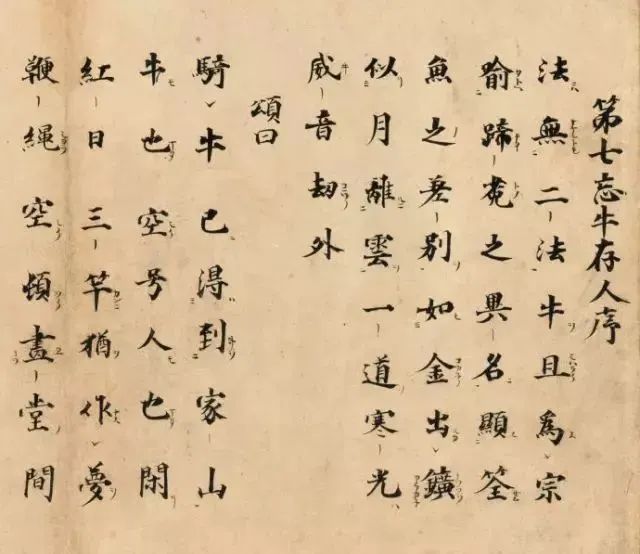 第七忘牛存人序
法無二法牛且為宗
喻蹄菟之異名顯筌
魚之差別如金出鑛
似月離雲一道寒光
威音劫外
頌曰
騎牛已得到家山
牛也空号人也閑
紅日三竿猶作夢
鞭繩空頓畫堂間